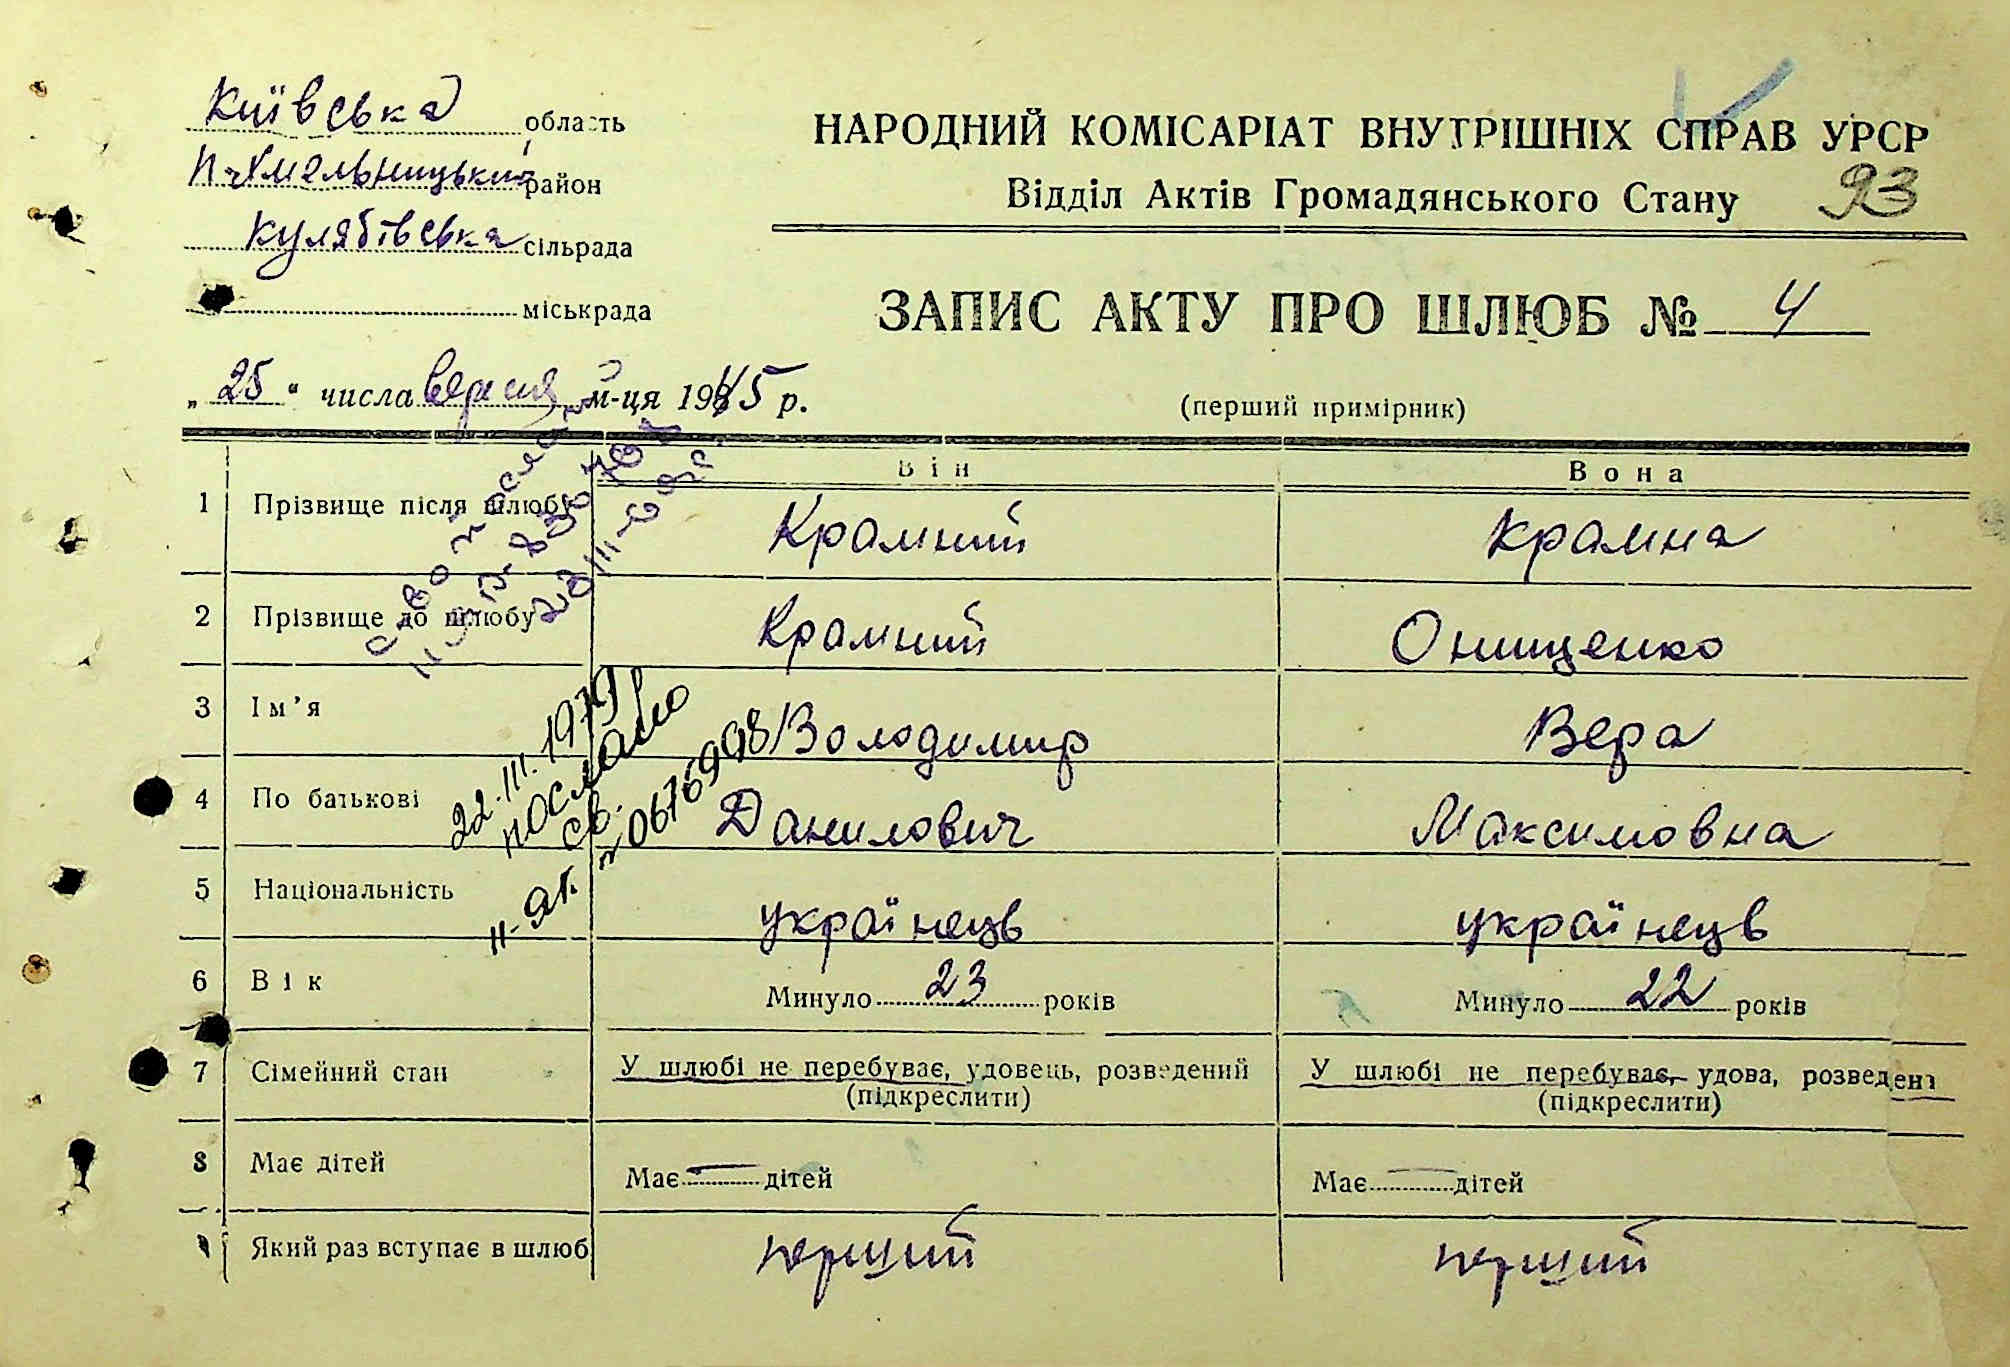 Київська область
П-Хмельницький район
Кулябівська сільрада
міськрада
НАРОДНИЙ КОМІСАРІАТ ВНУТРІШНІХ СПРАВ УРСР
Відділ Актів Громадянського Стану 93
ЗАПИС АКТУ ПРО ШЛЮБ № 4
„25“ числа вересня м-ця 1945 р.
(перший примірник)
Він Вона
1 Прізвище після шлюбу Крамний Крамна
2 Прізвище до шлюбу Крамний Онищенко
3 Ім'я Володимир Вера
4 По батькові Данилович Максимовна
5 Національність українець українець
6 Вік Минуло 23 років Минуло 22 років
7 Сімейний стан У шлюбі не перебуває, удовець, розведений У шлюбі не перебуває, удова, розведена
(підкреслити) (підкреслити)
8 Має дітей Має — дітей Має — дітей
Який раз вступає в шлюб перший перший
22.III.1979
послано
св.
II-ЯТ. № 0676998